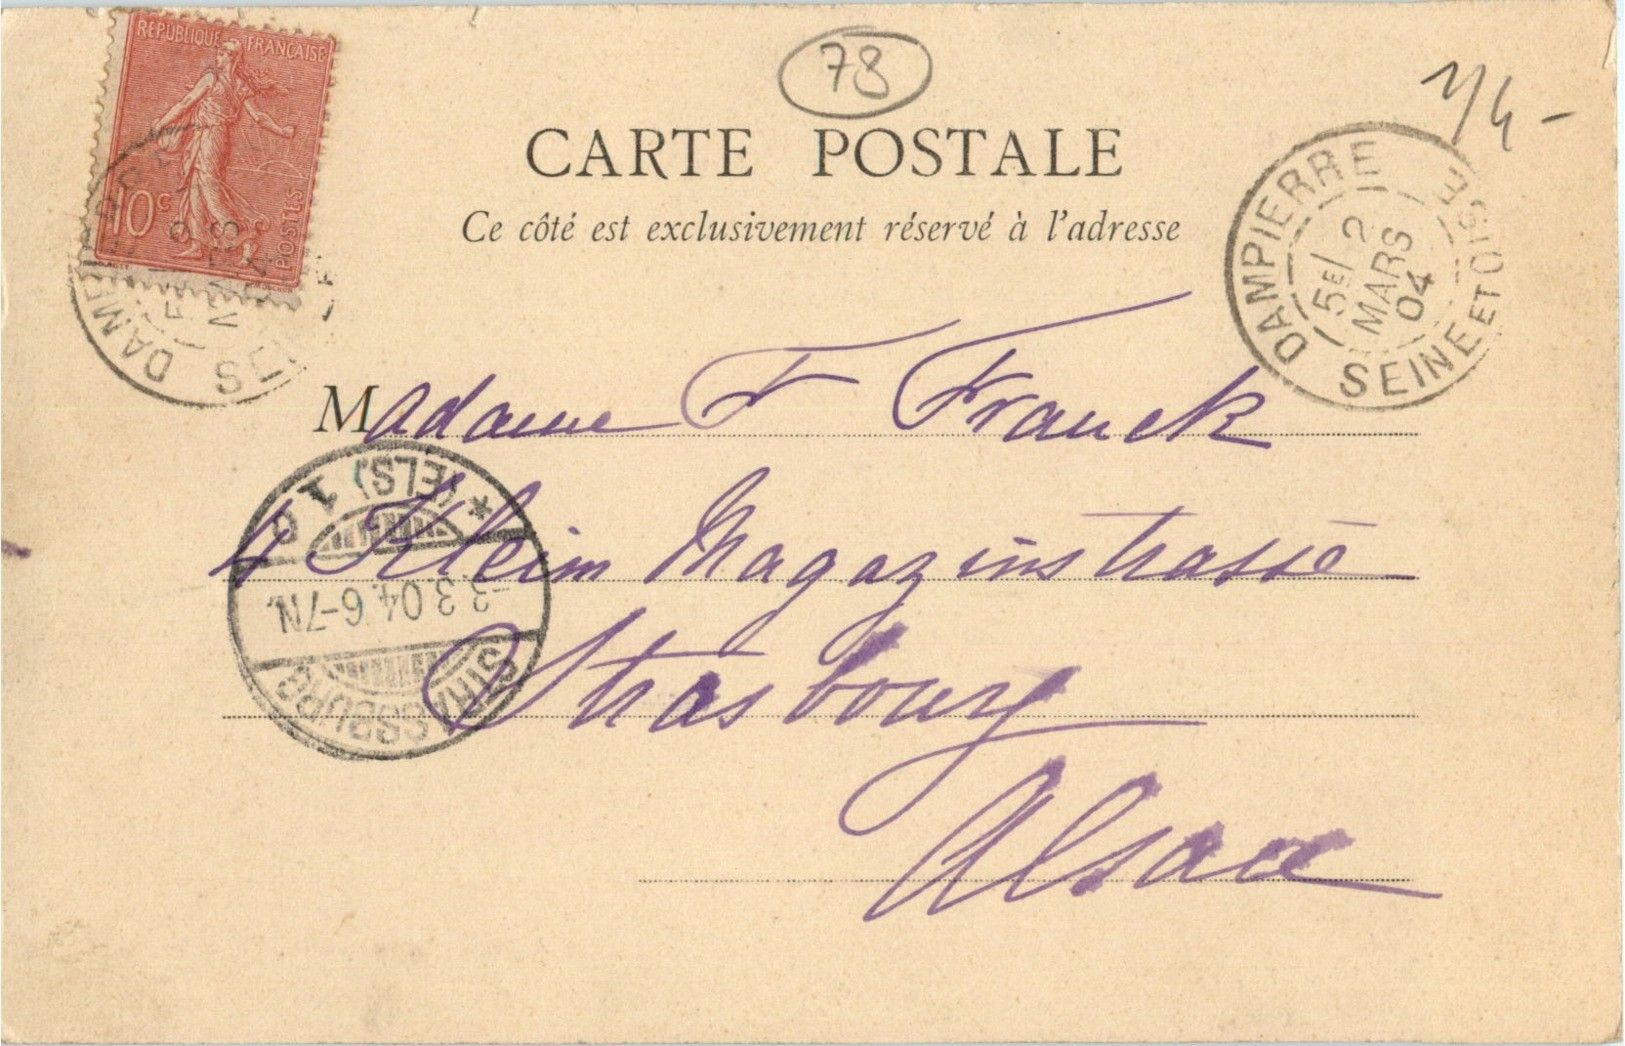 REPUBLIQUE FRANÇAISE
10c
POSTES
78
1/4-
CARTE POSTALE
Ce côté est exclusivement réservé à l'adresse
DAMPIERRE
5E/ 2
MARS
04
SEINE ET OISE
Madame F Franck
4 Klein Magazinstrasse
Strasbourg
Alsace
STRASSBURG
3.3.04. 6-7N.
* (ELS.) 1